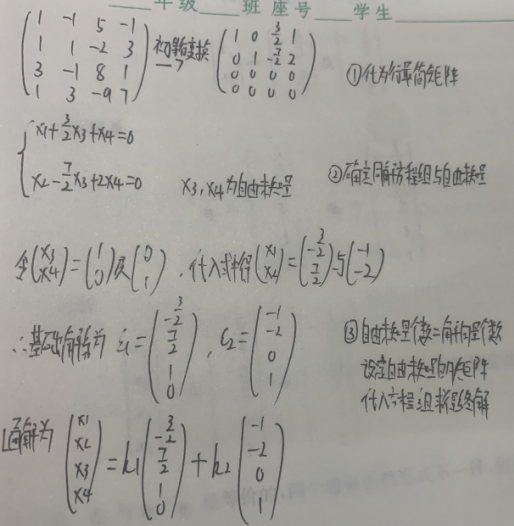 年级 班 座号 学生
(1 -1 5 -1; 1 1 -2 3; 3 -1 8 1; 1 3 -9 7) 初等变换 → (1 0 3/2 1; 0 1 -7/2 2; 0 0 0 0; 0 0 0 0) ①化为行最简矩阵
{ x1+3/2x3+x4=0
x2-7/2x3+2x4=0 x3,x4为自由未知量 ②确定同解方程组与自由未知量
令(x3 x4)=(1 0)及(0 1),代入式中得(x1 x2)=(-3/2 7/2)与(-1 -2)
∴基础解系为 ε1=(-3/2 7/2 1 0),ε2=(-1 -2 0 1) ③自由未知量个数=解向量个数
设定自由未知量的矩阵
代入方程组
通解为 (x1 x2 x3 x4)=k1(-3/2 7/2 1 0)+k2(-1 -2 0 1)